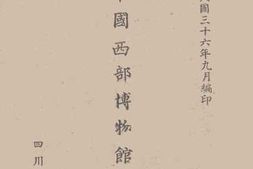 國三十六年九月編印
國西部博物館
四川